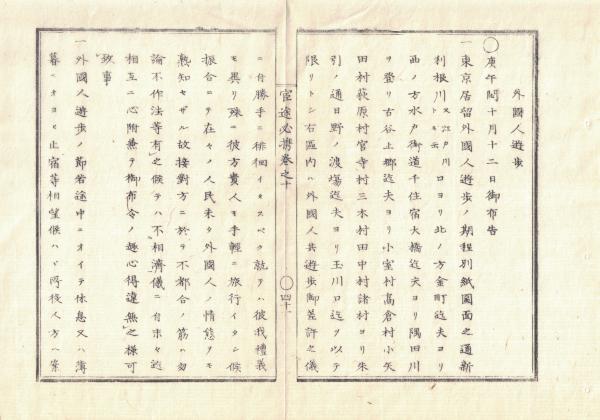 外國人遊歩
〇庚午閏十月十二日御布告
一東京居留外國人遊歩ノ期程別紙圖面之通新
利根川又江戸川トモ云口ヨリ北ノ方金町迄夫ヨリ
西ノ方水戸御道千住宿大橋迄夫ヨリ隅田川
ヲ登リ古谷上鄕迄夫ヨリ小室村高倉村小矢
田村荻原村宮寺村三木村田中村諸村ヨリ朱
引ノ通日野ノ渡塲迄夫ヨリ玉川口迄ヲ以テ
限リトシ右區内ハ外國人共遊歩御差許之儀
官途必携卷之十
〇四十一
ニ付勝手ニ徘徊イタスベク就テハ彼我禮義
モ異リ殊ニ彼方貴人モ手輕ニ旅行イタシ候
振合ニテ在々ノ人民未タ外國人ノ情態ヲモ
熟知セザル故接對方ニ於テ不都合ノ筋ハ勿
論不作法等有之候テハ不相濟儀ニ有之候條
相互ニ心附兼テ御布令ノ趣心得違無之樣可
致事
一外國人遊歩ノ節若途中ニオイテ休息又ハ薄
暮ニオヨヒ止宿等相望候ハヽ所役人方ヘ案